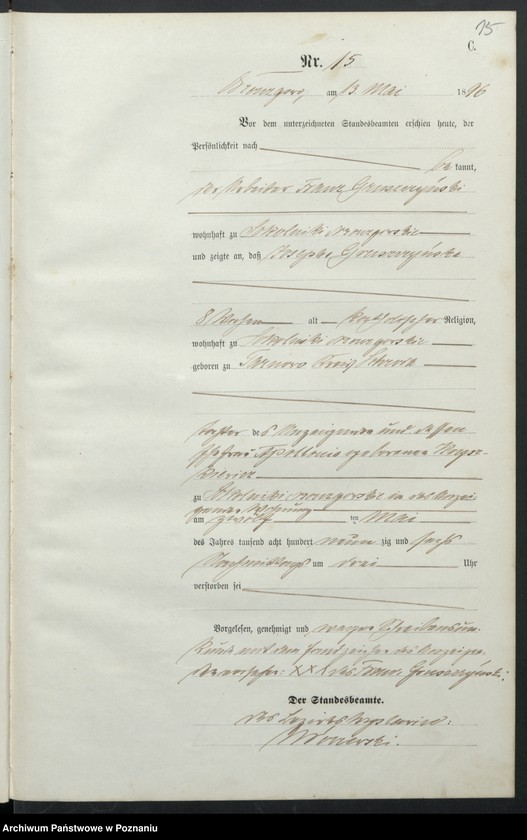 15
C.
Nr. 15
am 13 Mai 1896
Vor dem unterzeichneten Standesbeamten erschien heute, der
Persönlichkeit nach
be kannt,
der Arbeiter Franz Gruszczyński
wohnhaft zu Sokolniki
und zeigte an, daß Josepha Gruszczyńska
8 Wochen alt katholischer Religion,
wohnhaft zu Sokolniki
geboren zu Kreis
Tochter des Anzeigenden und dessen
Ehefrau Apollonia geborenen
zu Sokolniki in des Anzei-
genden Wohnung
am zwölf ten Mai
des Jahres tausend acht hundert neun zig und sechs
Nachmittags um drei Uhr
verstorben sei
Vorgelesen, genehmigt und wegen Schreibensun-
kunde mit dem Handzeichen des Anzeigen-
den versehen: XXX des Franz Gruszczyński.
Der Standesbeamte.
Archiwum Państwowe w Poznaniu